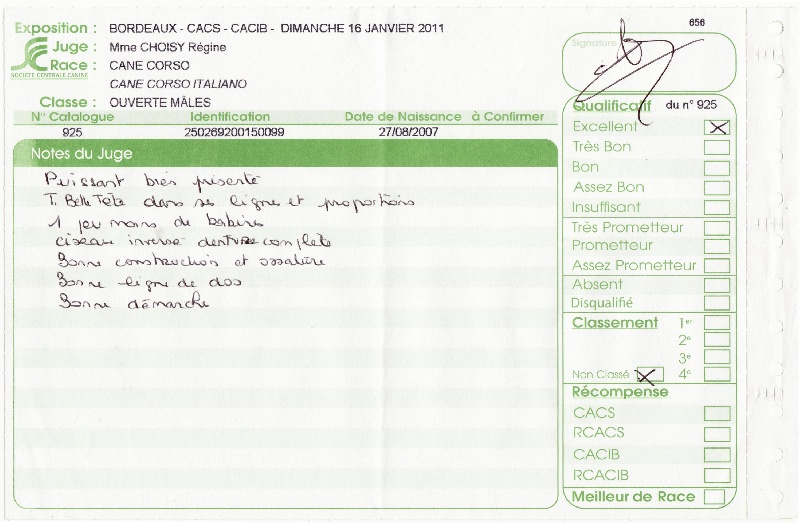 Exposition : BORDEAUX - CACS - CACIB - DIMANCHE 16 JANVIER 2011
Juge : Mme CHOISY Régine
Race : CANE CORSO
SOCIÉTÉ CENTRALE CANINE
CANE CORSO ITALIANO
Classe : OUVERTE MÂLES
N° Catalogue Identification Date de Naissance à Confirmer
925 250269200150099 27/08/2007
Notes du Juge
Puissant bien présenté
T. Belle Tete dans ses lignes et proportions
1 peu moins de babines
ciseau inversé denture complete
Bonne construction et ossature
Bonne ligne de dos
Bonne démarche
656
Signature
Qualificatif du n° 925
Excellent
Très Bon
Bon
Assez Bon
Insuffisant
Très Prometteur
Prometteur
Assez Prometteur
Absent
Disqualifié
Classement 1er
2e
3e
Non Classé 4e
Récompense
CACS
RCACS
CACIB
RCACIB
Meilleur de Race